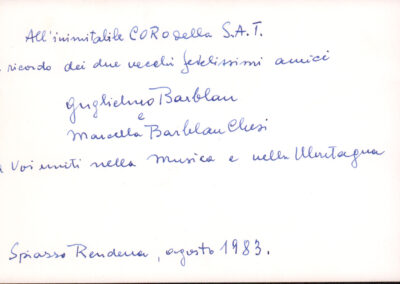 All'inimitabile CORO della S.A.T.
ricordo dei due vecchi fedelissimi amici
Guglielmo Barblan
e
Marcella Barblan Chesi
a Voi uniti nella Musica e nella Montagna
Spiazzo Rendena, agosto 1983.